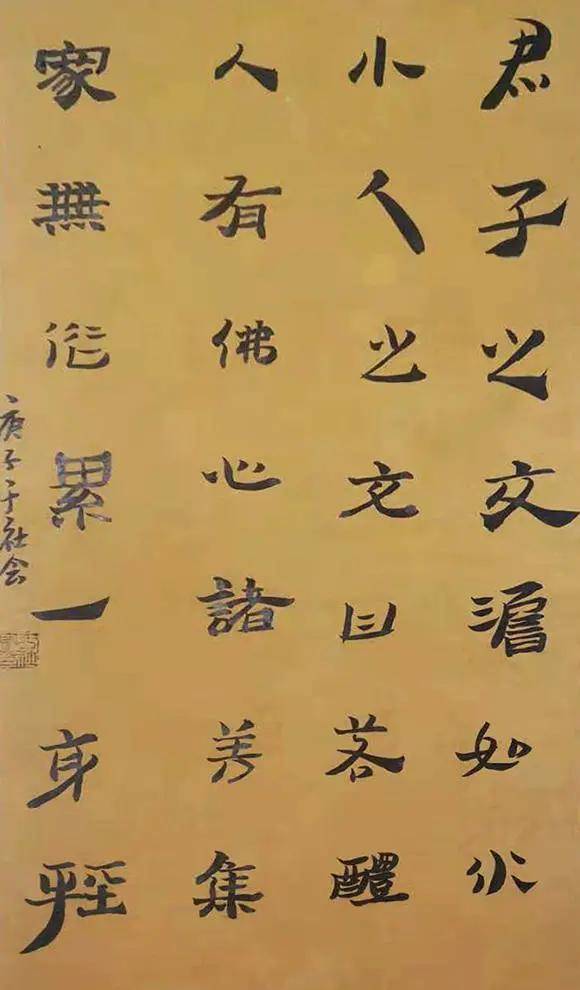 君子之交澹如水
小人之交甘若醴
人有佛心諸善集
家無累一身輕
庚子于社会